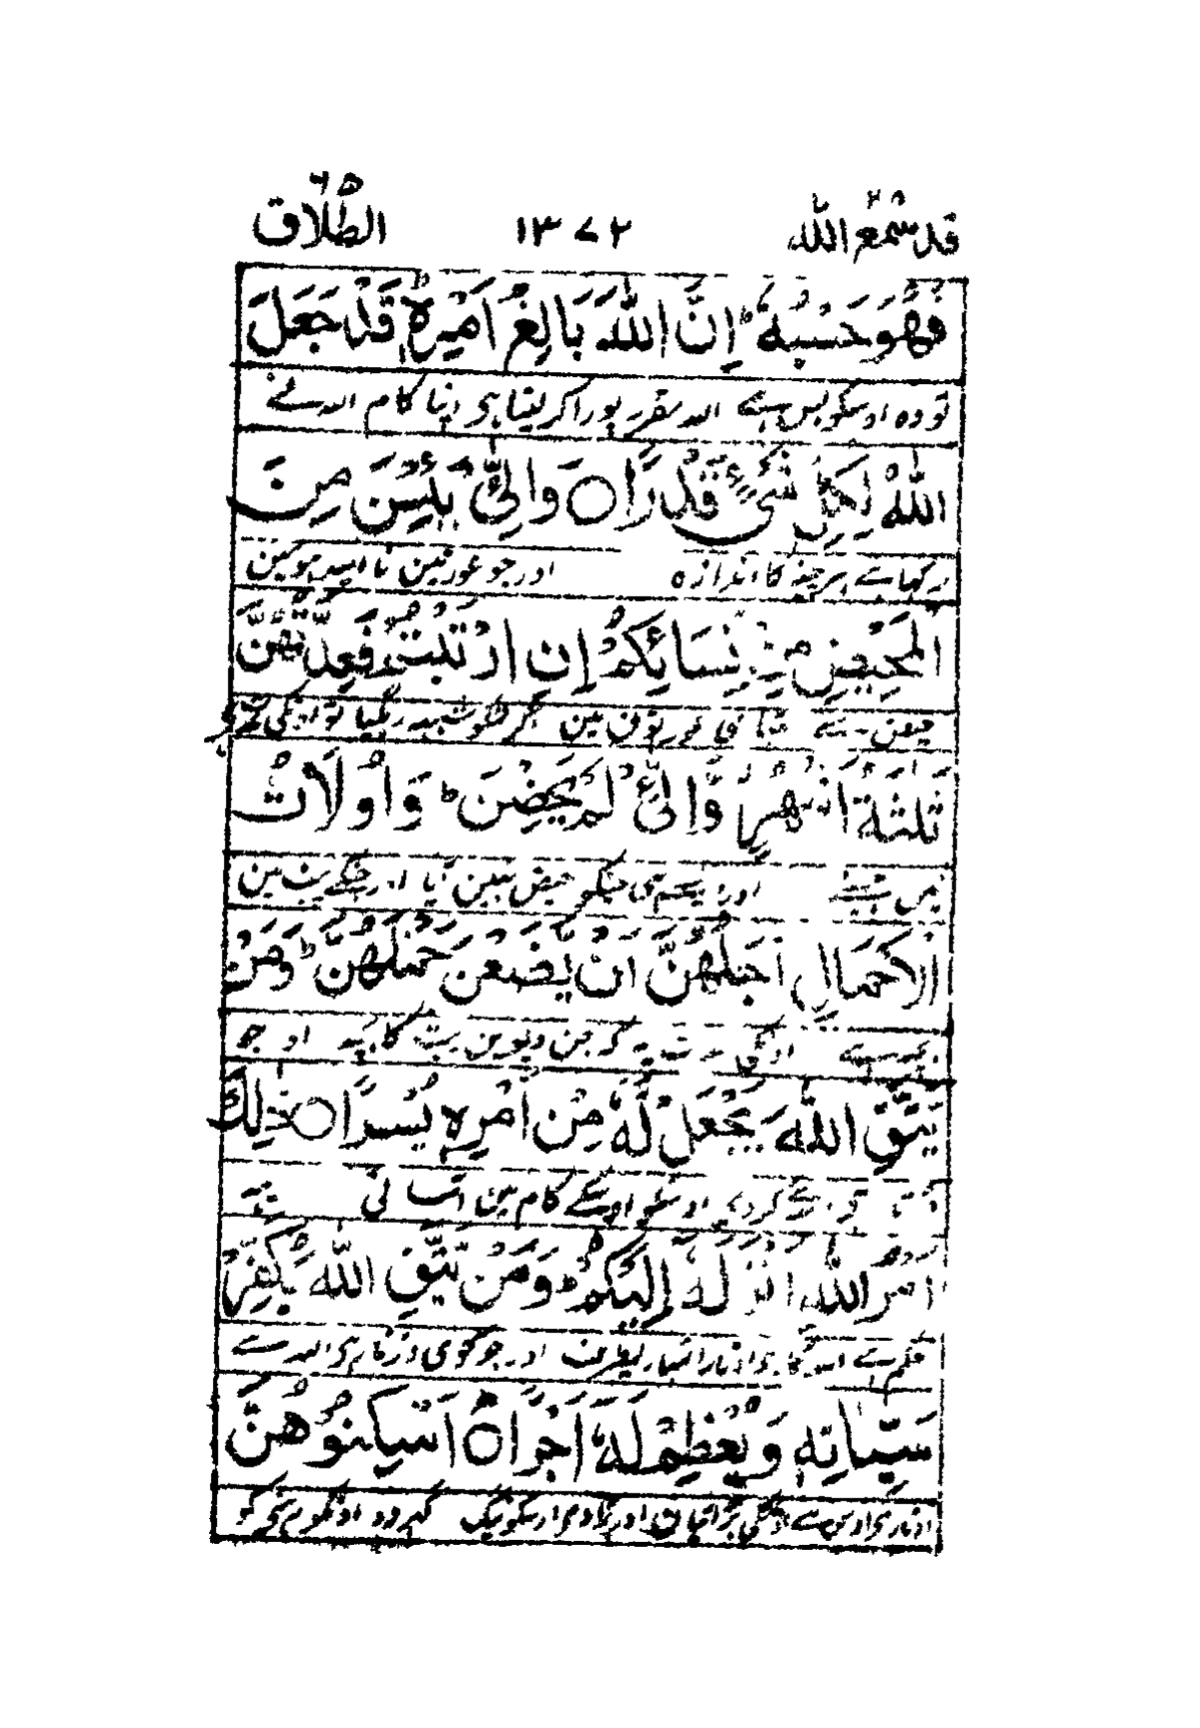 قد سمع الله ٢٨ ١٣٧٢ الطلاق ٦٥
فَهُوَ حَسْبُهٗ ؕ اِنَّ اللّٰهَ بَالِغُ اَمْرِهٖ ؕ قَدْ جَعَلَ
تو وہ اوسکو بس ہے اللہ مقرر پورا کر لیتا ہی اپنا کام اللہ نے
اللّٰهُ لِكُلِّ شَیْءٍ قَدْرًا ○ وَالّٰٓـِٔیْ یَئِسْنَ مِنَ
رکھا ہے ہر چیز کا اندازہ اور جو عورتین نا امید ہوئین
الْمَحِیْضِ مِنْ نِّسَآئِكُمْ اِنِ ارْتَبْتُمْ فَعِدَّتُهُنَّ
حیض سے تمہاری عورتون مین اگر تمکو شبہہ رہگیا تو اونکی عدت
ثَلٰثَةُ اَشْهُرٍ وَّالّٰٓـِٔیْ لَمْ یَحِضْنَ ؕ وَاُولَاتُ
تین مہینے اور ایسے ہی جنکو حیض نہین آیا اور جنکے پیٹ مین
الْاَحْمَالِ اَجَلُهُنَّ اَنْ یَّضَعْنَ حَمْلَهُنَّ ؕ وَمَنْ
بچہ ہے اونکی عدت یہ کہ جن دیوین پیٹ کا بچہ اور جو
یَّتَّقِ اللّٰهَ یَجْعَلْ لَّهٗ مِنْ اَمْرِهٖ یُسْرًا ○ ذٰلِكَ
کردے اوسکو اوسکے کام مین آسانی یہ
اَمْرُ اللّٰهِ اَنْزَلَهٗٓ اِلَیْكُمْ ؕ وَمَنْ یَّتَّقِ اللّٰهَ یُكَفِّرْ
حکم ہے اللہ کا جو اوتارا تمہاری طرف اور جو کوئی ڈرتا رہی اللہ سے
سَیِّاٰتِهٖ وَیُعْظِمْ لَهٗٓ اَجْرًا ○ اَسْكِنُوْهُنَّ
اوتاری اوس سے اوسکی برائیان اور بڑا دی اوسکو نیگ گہر دو اونکو رہنے کو